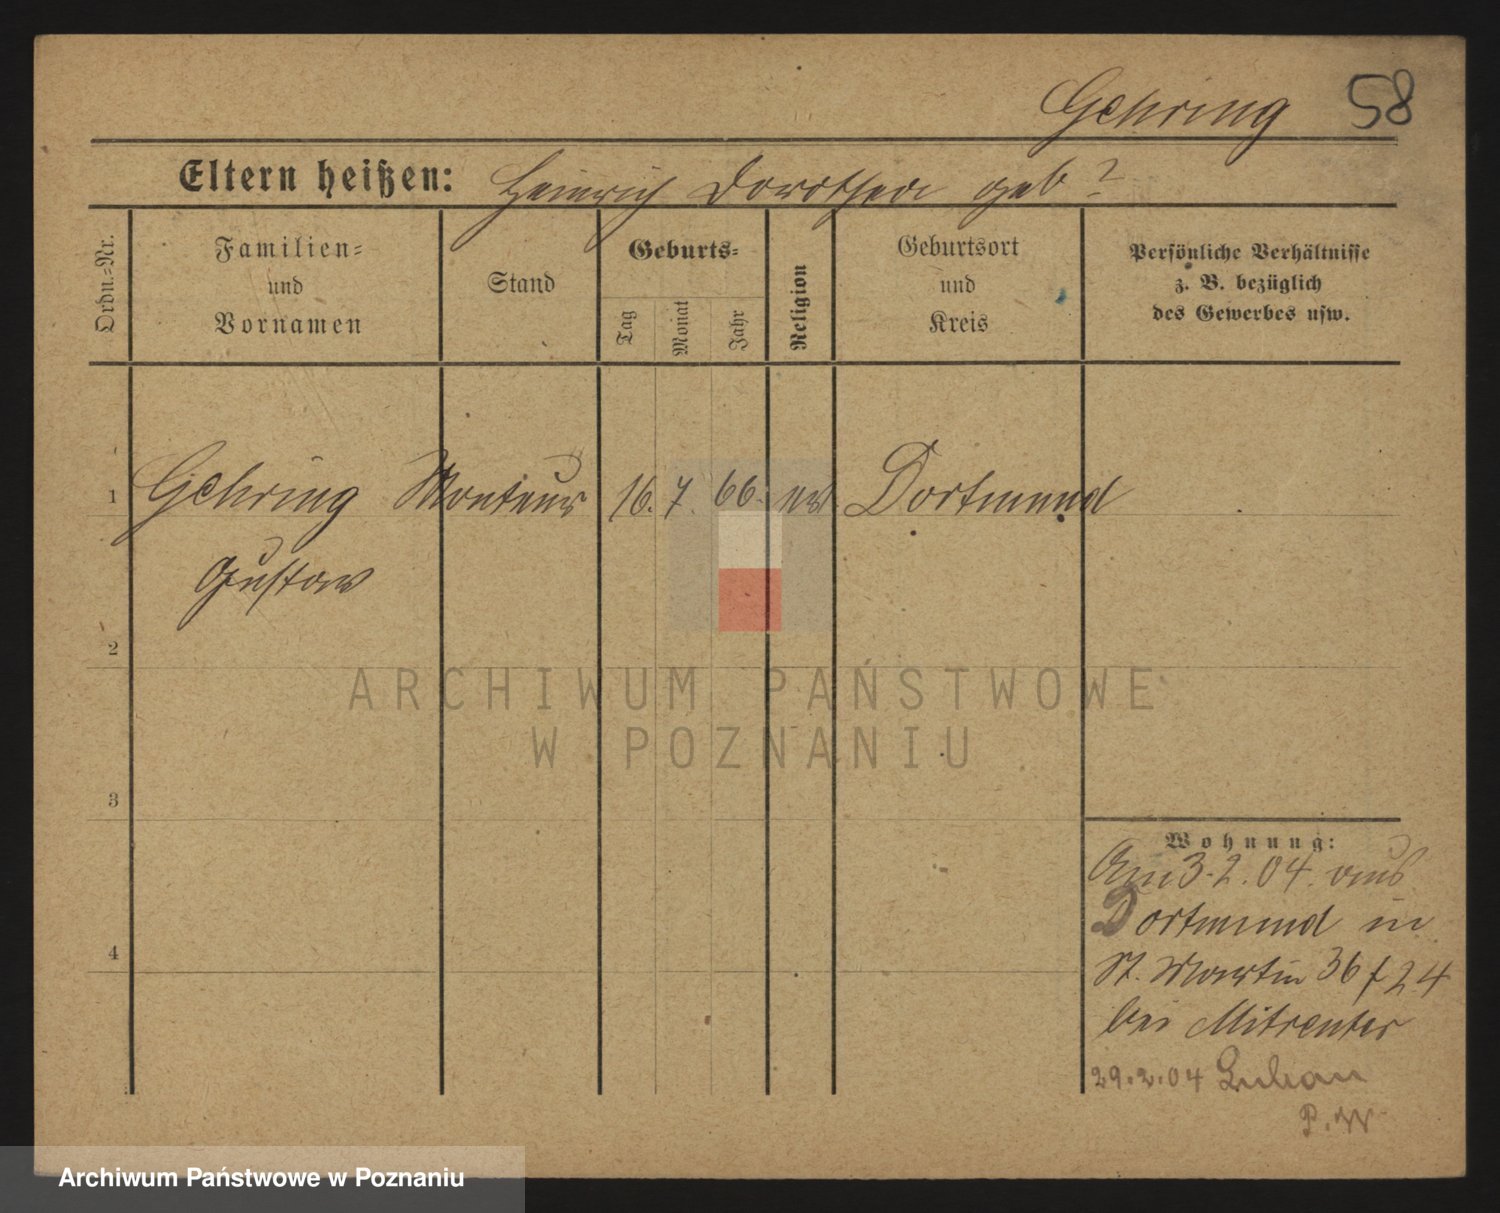 Gehring 58
Eltern heißen: Heinrich Dorothea geb?
Ordn.=Nr.
Familien=
und
Vornamen
Stand
Geburts=
Tag
Monat
Jahr
Religion
Geburtsort
und
Kreis
Persönliche Verhältnisse
z. B. bezüglich
des Gewerbes usw.
1 Gehring Monteur 16. 7. 66. ev. Dortmund
Gustav
2
3
4
ARCHIWUM PAŃSTWOWE
W POZNANIU
Wohnung:
Am 3.2.04. aus
Dortmund in
St. Martin 36 f 24
bei Mitreuter
29.2.04
P. W
Archiwum Państwowe w Poznaniu